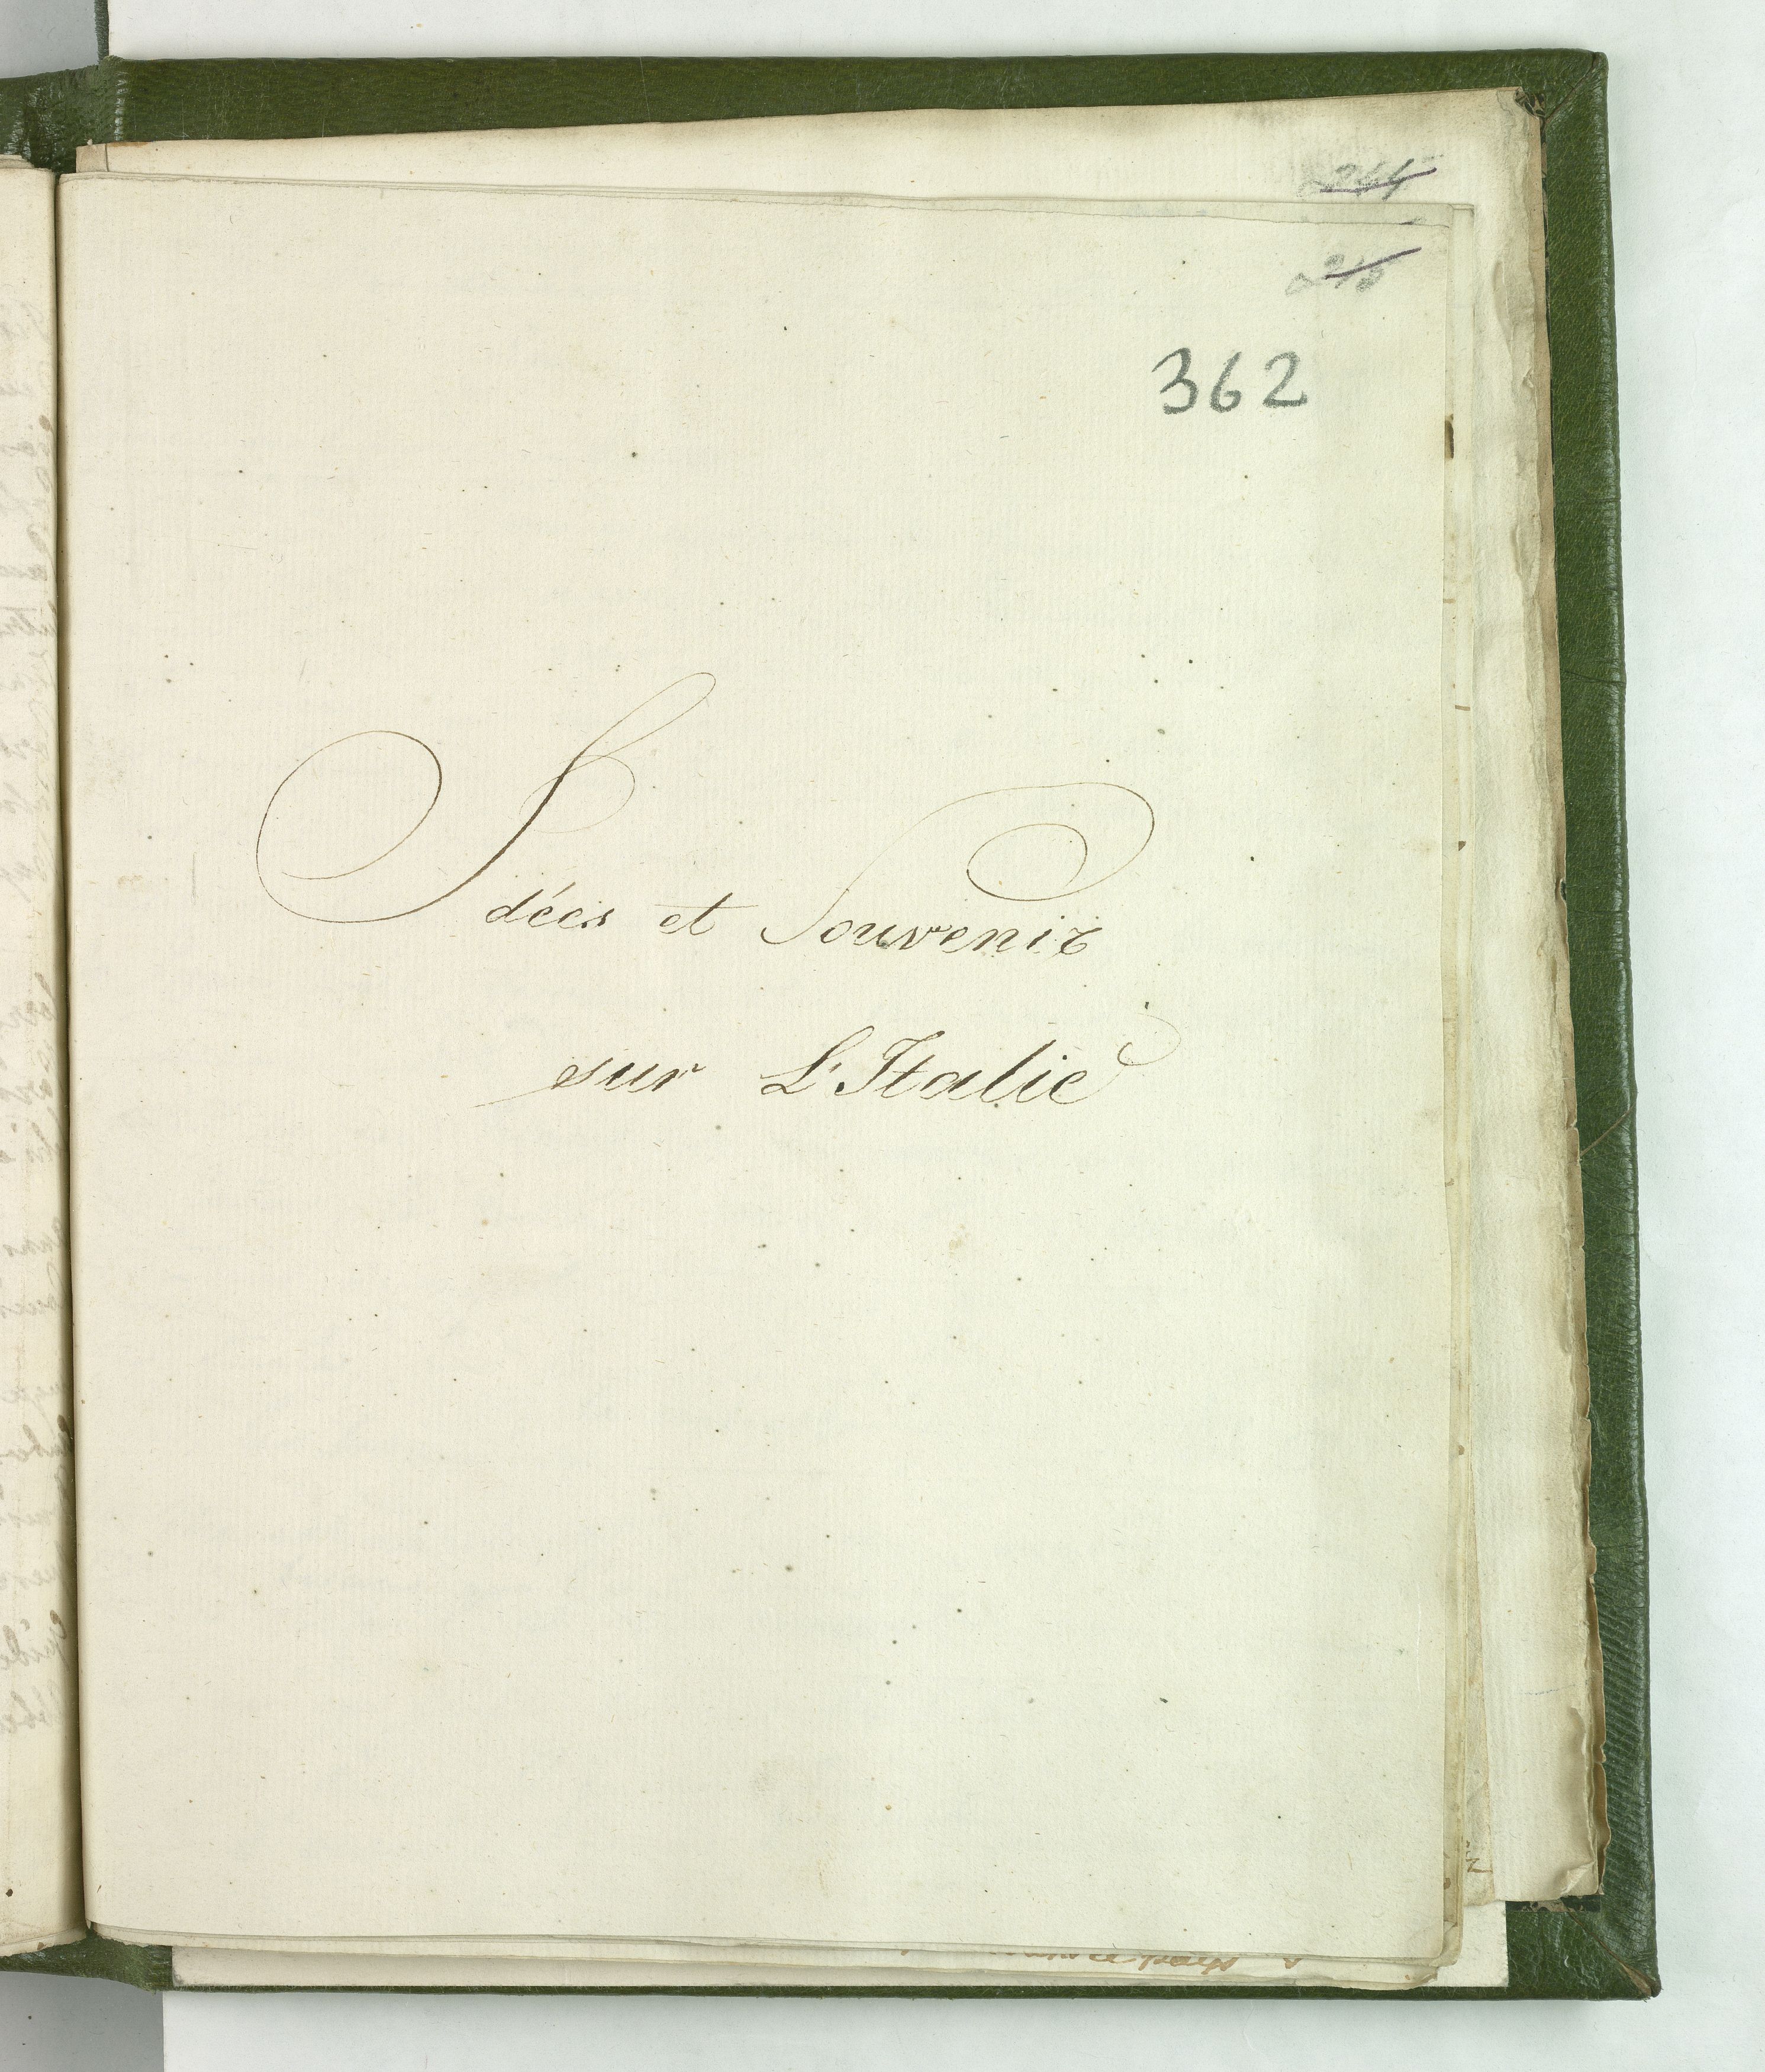 362
Idées et Souvenir
sur L'Italie